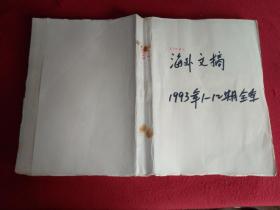 海外文摘
1993年1-12期全年